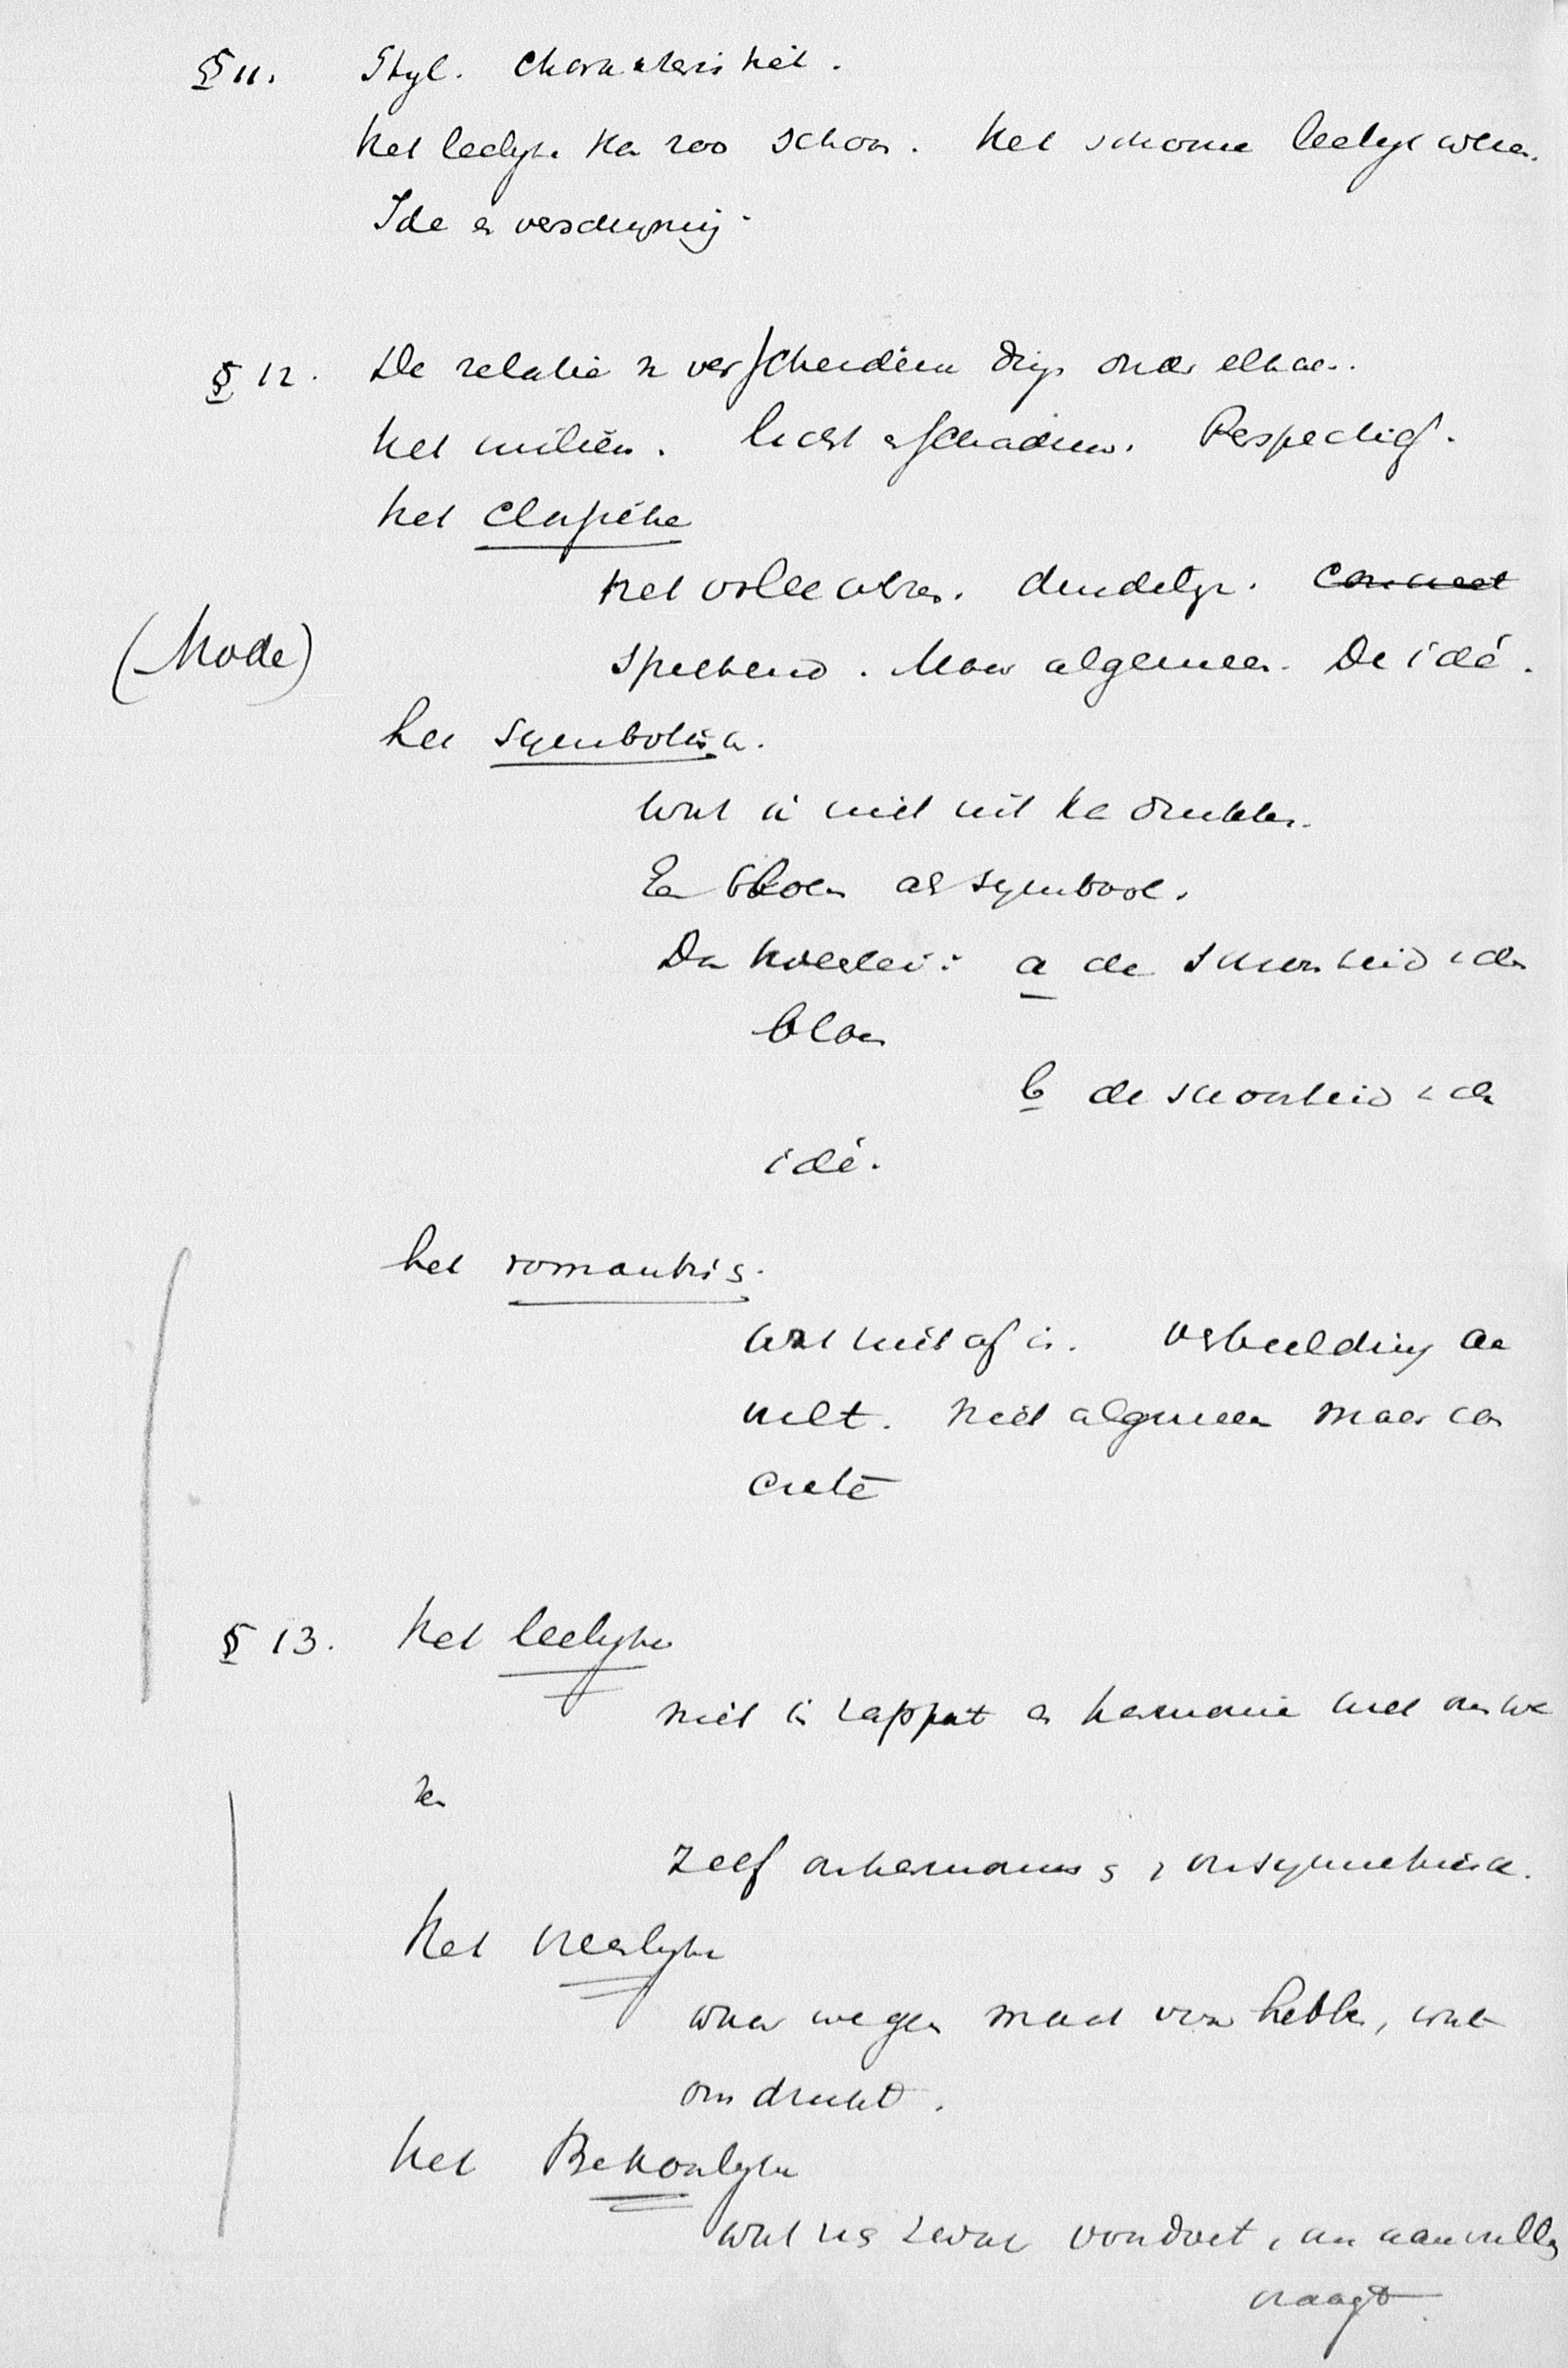 § 11. Styl. Charakteristiek.
Het leelyke kan zoo schoon. Het schoone leelyk
Ide en verschyning.
§ 12. De relatie v verscheidene ding onder elkaer.
Het milieu. licht en schaduw. Perspectief.
Het classieke
Het volle duidelyk. Concreet
(Mode) sprekend. Maar algemeen. De idé.
het symbolisch.
Wat ik niet uit ka drukken.
Een bloem als symbool.
Dan tweeërlei: a de schoonheid v den
bloem
b de schoonheid v de
idé.
het romantis.
Wat niet af is. Verbeelding aan
vult. Niet algemeen maar con
creet
§ 13. Het leelyke
niet in rapport en harmonie met ons we
zen
Zelf onharmonis, onsymmetrisch.
Het heerlyke
waar we geen maat voor hebben, wat
ons drukt.
Het Bekoorlyke
wat iets voordoet, en aanvulling
vraagt